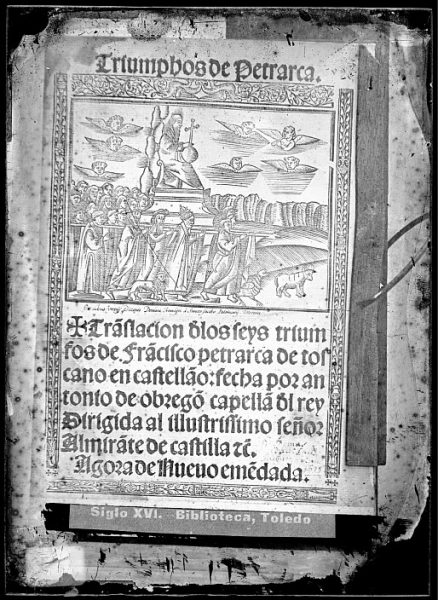 Triumphos de Petrarca.
✠Trãslacion dłos seys trium
fos de Frãcisco petrarca de tos
cano en castellão: fecha por an
tonio de obregõ capellã dł rey
Dirigida al illustrissimo señor
Almirãte de castilla ⁊c̃.
Agora de Nueuo emẽdada.
Siglo XVI. Biblioteca, Toledo